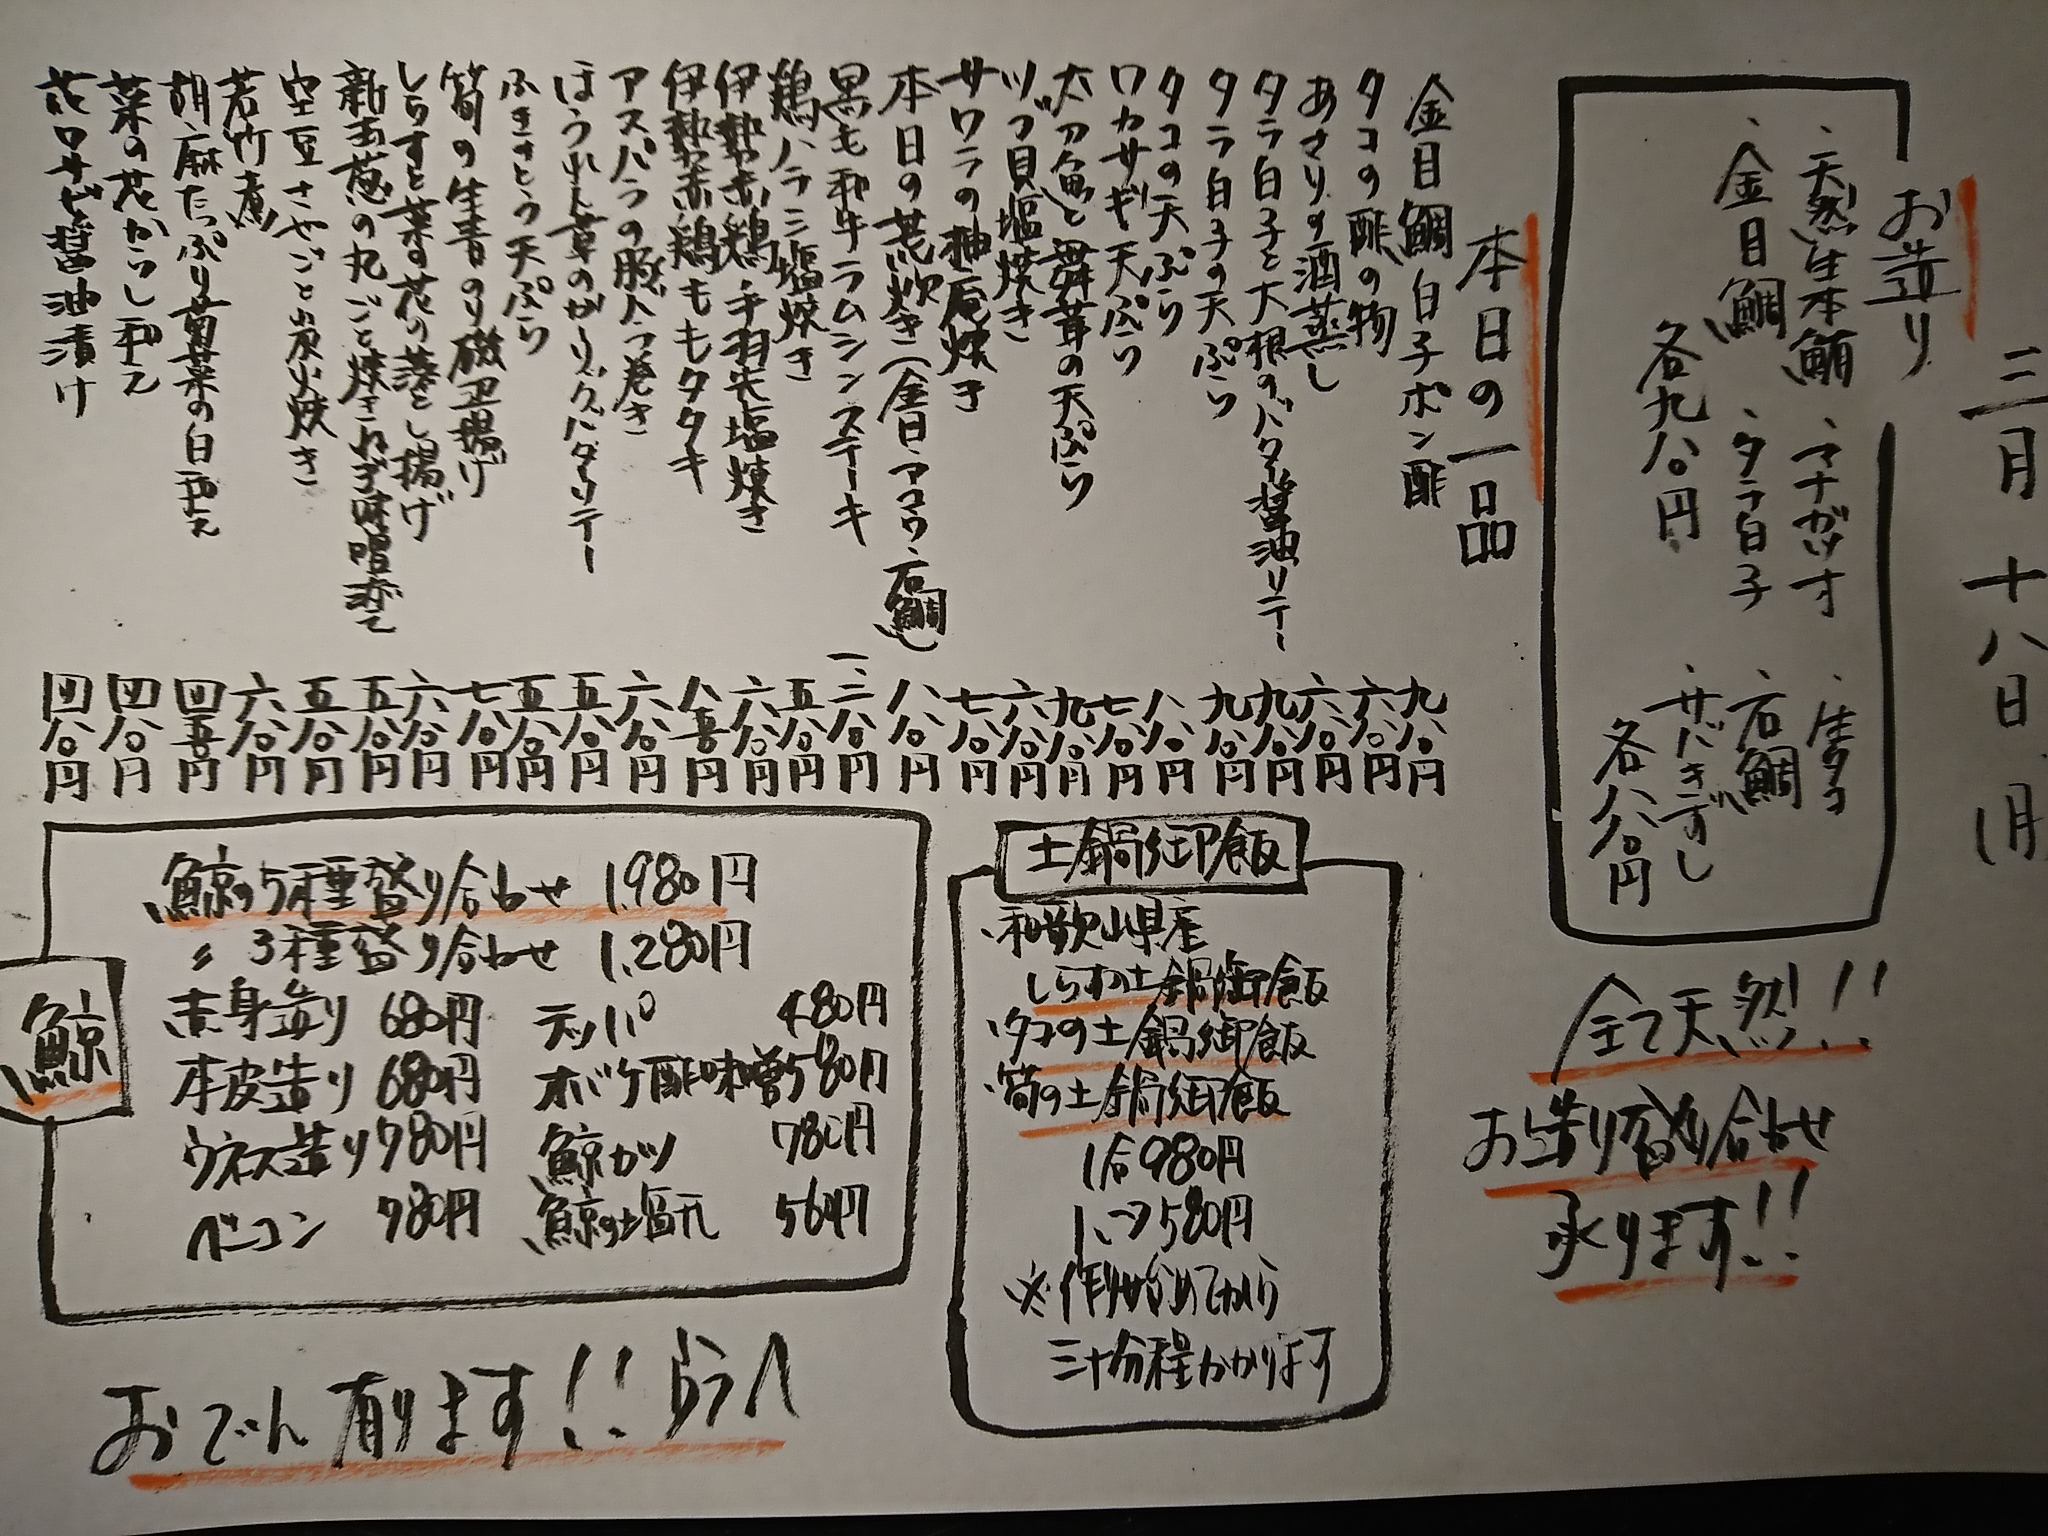 三月十八日(月)
お造り
・天然生本鮪 ・マナガツオ ・生タコ
・金目鯛 ・タラ白子 ・石鯛
・サバきずし
各九八〇円
各八八〇円
全て天然!!
お造り盛り合わせ
承ります!!
本日の一品
金目鯛白子ポン酢 九八〇円
タコの酢の物 六八〇円
あさりの酒蒸し 六八〇円
タラ白子と大根のバター醤油ソテー 九八〇円
タラ白子の天ぷら 九八〇円
タコの天ぷら 八八〇円
ワカサギ天ぷら 七八〇円
太刀魚と舞茸の天ぷら 九八〇円
ツブ貝塩焼き 六八〇円
サワラの柚庵焼き 七八〇円
本日の荒炊き(金目、アコウ、石鯛) 八八〇円
黒毛和牛ラムシンステーキ 一二八〇円
鶏ハラミ塩焼き 五八〇円
伊勢赤鶏手羽先塩焼き 六八〇円
伊勢赤鶏ももタタキ 八八〇円
アスパラの豚バラ巻き 六八〇円
ほうれん草のガーリックバターソテー 五八〇円
ふきのとう天ぷら 五八〇円
筍の生青のり磯辺揚げ 七八〇円
しらすと菜の花の落とし揚げ 六八〇円
新玉葱の丸ごと焼きねぎ味噌添えて 五八〇円
空豆さやごと炭火焼き 五八〇円
若竹煮 六八〇円
胡麻たっぷり菊菜の白和え 四八〇円
菜の花からし和え 四八〇円
花ワサビ醤油漬け 四八〇円
土鍋御飯
・和歌山県産
しらすの土鍋御飯
・タコの土鍋御飯
・筍の土鍋御飯
1合980円
1/2 580円
※作り始めてから
三十分程かかります
鯨
鯨の5種盛り合わせ 1,980円
〃 3種盛り合わせ 1,280円
赤身造り 680円 テッパ 480円
本皮造り 680円 オバケ酢味噌 580円
ウネス造り 780円 鯨ガツ 780円
ベーコン 780円 鯨の塩タレ 560円
おでん有ります!!